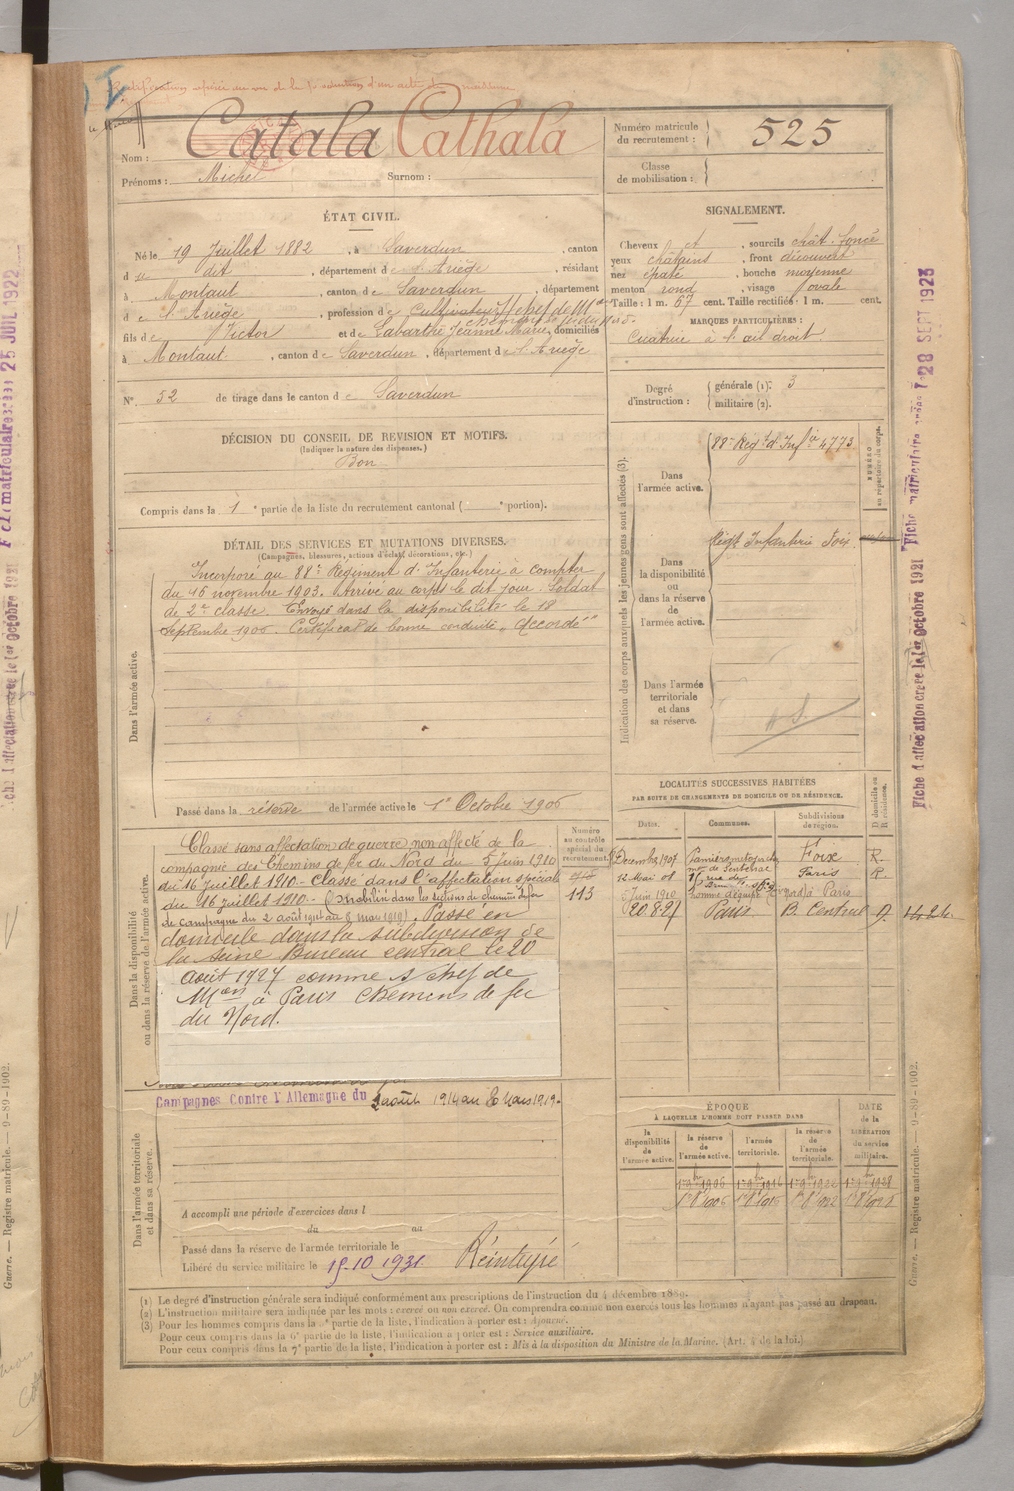 Catala Cathala
Nom :
Prénoms : Michel Surnom :
Numéro matricule
du recrutement : 525
Classe
de mobilisation :
ÉTAT CIVIL.
Né le 19 Juillet 1882, à Saverdun, canton
du dit, département de l'Ariège, résidant
à Montaut, canton de Saverdun, département
de l'Ariège, profession de Cultivateur
fils de Victor et de Labarthe Jeanne Marie, domiciliés
à Montaut, canton de Saverdun, département de l'Ariège
N° 52 de tirage dans le canton de Saverdun
DÉCISION DU CONSEIL DE REVISION ET MOTIFS.
(Indiquer la nature des dispenses.)
Bon
Compris dans la 1e partie de la liste du recrutement cantonal ( e portion).
SIGNALEMENT.
Cheveux et, sourcils chât. foncé
yeux châtains, front découvert
nez épaté, bouche moyenne
menton rond, visage ovale
Taille : 1 m. 67 cent. Taille rectifiée : 1 m. cent.
MARQUES PARTICULIÈRES :
Cicatrice à l'œil droit.
Degré
d'instruction :
générale (1): 3
militaire (2).
DÉTAIL DES SERVICES ET MUTATIONS DIVERSES.
(Campagnes, blessures, actions d'éclat, décorations, etc.)
Dans l'armée active.
Incorporé au 88e Régiment d'Infanterie à compter
du 16 novembre 1903. Arrivé au corps le dit jour. Soldat
de 2e classe. Envoyé dans la disponibilité le 18
Septembre 1906. Certificat de bonne conduite "Accordé"
Passé dans la réserve de l'armée active le 1er Octobre 1906
Indication des corps auxquels les jeunes gens sont affectés (3).
NUMÉRO
au répertoire du corps.
Dans
l'armée active.
88e Régt d'Infie 4773
Dans
la disponibilité
ou dans
la réserve
de
l'armée active.
Régt Infanterie Foix
Dans l'armée
territoriale
et dans
sa réserve.
Dans la disponibilité
ou dans la réserve de l'armée active.
Numéro
au contrôle
spécial du
recrutement.
113
Classé sans affectation de guerre non affecté de la
compagnie des Chemins de fer du Nord du 5 juin 1910
du 16 juillet 1910 - Classé dans l'affectation spéciale
du 16 juillet 1910 - (Rétabli dans les sections de chemins de fer
de Campagne du 2 août 1914 au 8 mars 1919). Passé en
domicile dans la subdivision de
la Seine Bureau central le 20
Août 1927 comme s/chef de
Mon à Paris Chemins de fer
du Nord.
LOCALITÉS SUCCESSIVES HABITÉES
PAR SUITE DE CHANGEMENTS DE DOMICILE OU DE RÉSIDENCE.
Dates. Communes. Subdivisions
de région. D domicile ou
R résidence.
Décembre 1907 Pamiers Foix R.
12 Mai 08 Paris R.
5 Juin 1910 homme d'équipe Paris
20.8.27 Paris B. Central D
Dans l'armée territoriale
et dans sa réserve.
Campagnes Contre l'Allemagne du 2 août 1914 au 8 Mars 1919.
A accompli une période d'exercices dans l
du au
Passé dans la réserve de l'armée territoriale le
Libéré du service militaire le 15-10 1931. Réintégré
ÉPOQUE
À LAQUELLE L'HOMME DOIT PASSER DANS
DATE
de la
LIBÉRATION
du service
militaire.
la
disponibilité
de
l'armée active.
la réserve
de
l'armée active.
l'armée
territoriale.
la réserve
de
l'armée
territoriale.
1er 9bre 1906 1er 9bre 1916 1er 9bre 1922 1er 9bre 1928
1er 8bre 1906 1er 8bre 1916 1er 8bre 1922 1er 8bre 1928
(1) Le degré d'instruction générale sera indiqué conformément aux prescriptions de l'instruction du 4 décembre 1889.
(2) L'instruction militaire sera indiquée par les mots : exercé ou non exercé. On comprendra comme non exercés tous les hommes n'ayant pas passé au drapeau.
(3) Pour les hommes compris dans la e partie de la liste, l'indication à porter est : Ajourné.
Pour ceux compris dans la 6e partie de la liste, l'indication à porter est : Service auxiliaire.
Pour ceux compris dans la 7e partie de la liste, l'indication à porter est : Mis à la disposition du Ministre de la Marine. (Art. 4 de la loi.)
Guerre. — Registre matricule. — 9-89-1902.
Guerre. — Registre matricule. — 9-89-1902.
25 JUIL 1922
Fiche d'affectation créée le 1er octobre 1921
28 SEPT 1923